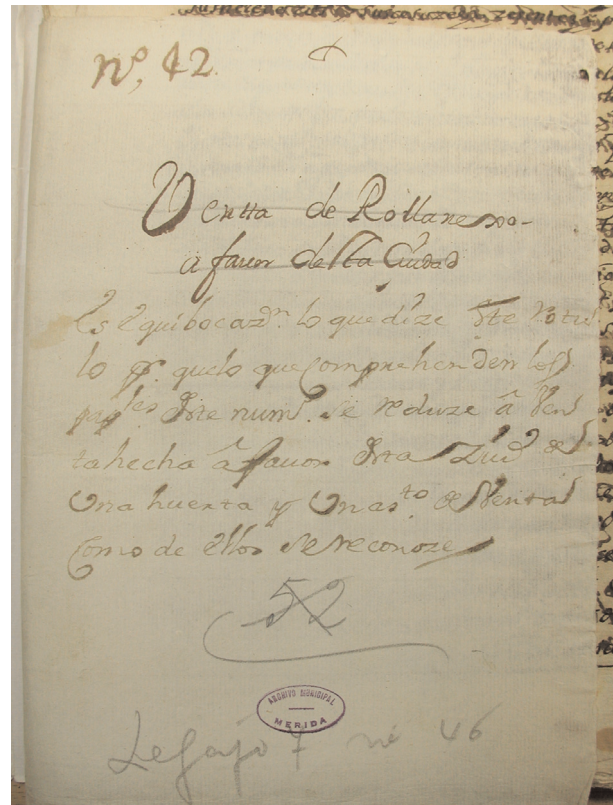 nº, 42
Ventta de Rollanejo
a fauor desta Ciudad
Es Equibocazn. lo que dize Ste Rotu
lo pr. quelo que Comprehenden los
paples. Dste numo. se reduze â Ven
ta hecha â fauor Dsta Ziud. de
Una huerta y Unasto. de Venta
Como de ellos se reconoze
52
ARCHIVO MUNICIPAL
MERIDA
Legajo 7 nº 46